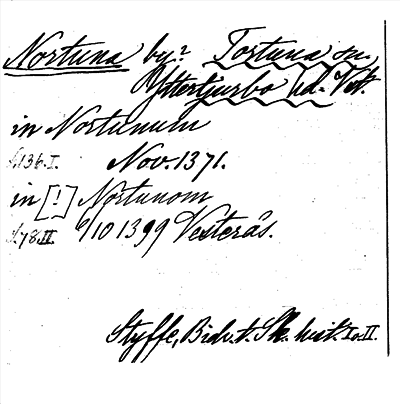 Nortuna by? Tortuna sn,
Yttertjurbo hd. Vstm.
in Nortunum
s.136.I. Nov. 1371.
in [!] Nortunom
s.78.II. 6/10 1399 Vesterås.
Styffe, Bidr. t. Sk. hist. I o. II.